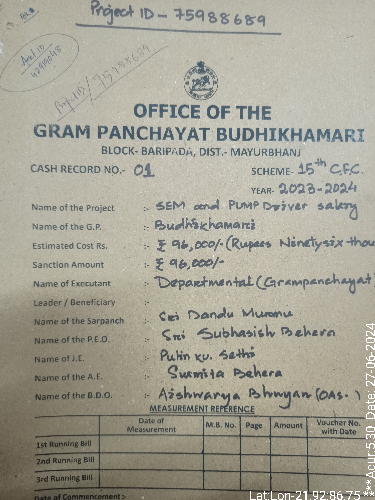 Project ID - 75988689
Project ID / 75988689
OFFICE OF THE
GRAM PANCHAYAT BUDHIKHAMARI
BLOCK- BARIPADA, DIST.- MAYURBHANJ
CASH RECORD NO.- 01 SCHEME- 15th C.F.C.
YEAR- 2023-2024
Name of the Project :- SEM and PUMP Driver salary
Name of the G.P. :- Budhikhamari
Estimated Cost Rs. :- ₹ 96,000/- (Rupees Ninetysix thou
Sanction Amount :- ₹ 96,000/-
Name of Executant :- Departmental (Grampanchayat)
Leader / Beneficiary :-
Name of the Sarpanch :- Sri Dandu Murmu
Name of the P.E.O. :- Sri Subhasish Behera
Name of J.E. :- Pulin Ku. Sethi
Name of the A.E. :- Susmita Behera
Name of the B.D.O. :- Aishwarya Bhuyan (OAS.)
MEASUREMENT REFERENCE
Date of Measurement M.B. No. Page Amount Voucher No. with Date
1st Running Bill
2nd Running Bill
3rd Running Bill
Date of Commencement:-
Lat:Lon-21.92:86.75
***Acur:5.30 Date: 27-06-2024